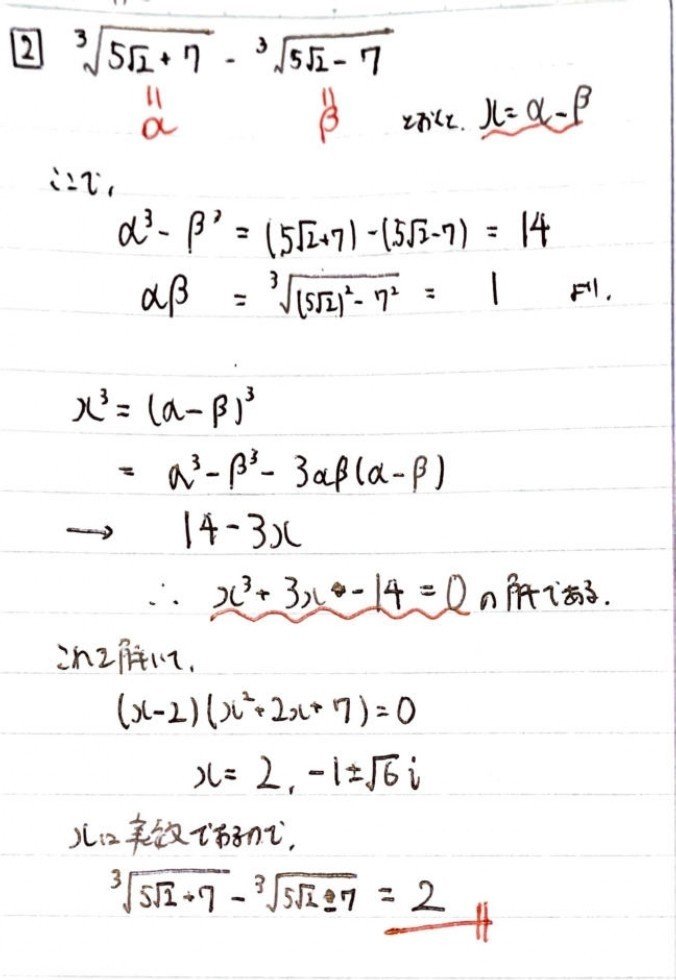 2 ∛(5√2 + 7) - ∛(5√2 - 7)
= α = β とおくと、 x = α - β
ここで、
α³ - β³ = (5√2+7) - (5√2-7) = 14
αβ = ∛((5√2)² - 7²) = 1 より、
x³ = (α - β)³
= α³ - β³ - 3αβ(α - β)
→ 14 - 3x
∴ x³ + 3x - 14 = 0 の解である.
これを解いて、
(x-2)(x²+2x+7) = 0
x = 2, -1±√6 i
xは実数であるので、
∛(5√2+7) - ∛(5√2-7) = 2